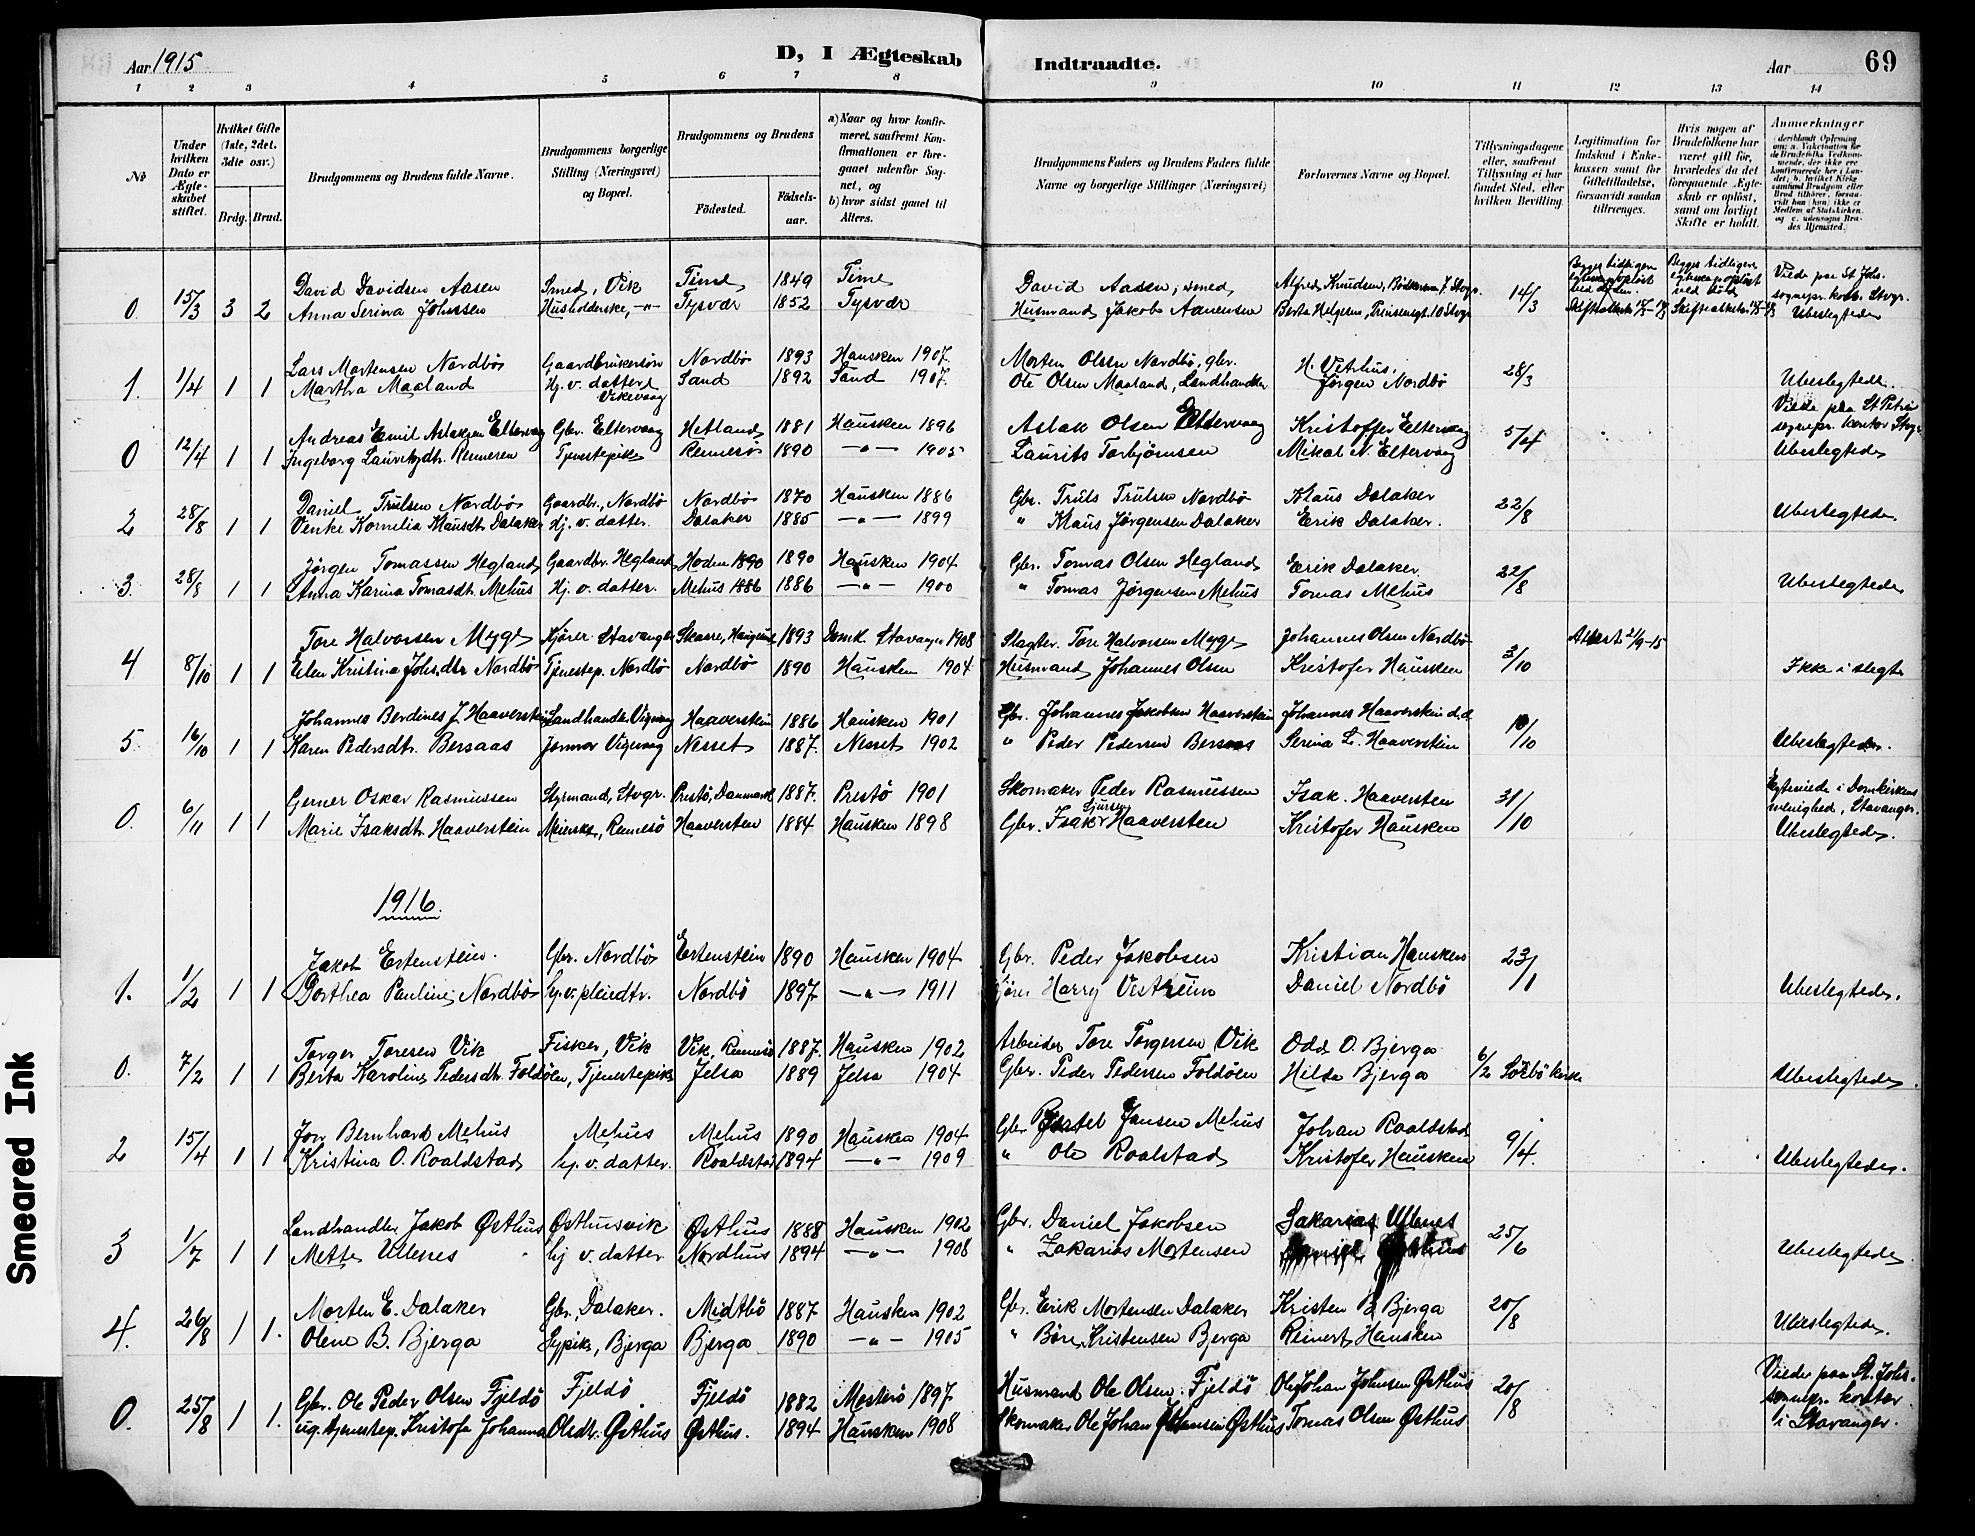 Aar 1915
D, I Ægteskab Indtraadte.
Aar
69
1 2 3 4 5 6 7 8 9 10 11 12 13 14
No
Under hvilken Dato er Ægteskabet stiftet.
Hvilket Gifte (1ste, 2det. 3die osv.)
Brdg. Brud.
Brudgommens og Brudens fulde Navne.
Brudgommens borgerlige Stilling (Næringsvei) og Bopæl.
Brudgommens og Brudens
Fødested.
Fødselsaar.
a) Naar og hvor konfirmeret, saafremt Konfirmationen er foregaaet udenfor Sognet, og
b) hvor sidst gaaet til Alters.
Brudgommens Faders og Brudens Faders fulde Navne og borgerlige Stillinger (Næringsvei)
Forlovernes Navne og Bopæl.
Tillysningsdagene eller, saafremt Tillysning ei har fundet Sted, efter hvilken Bevilling.
Legitimation for Indskud i Enkekassen samt for Giftetilladelse, forsaavidt saadan tiltrænges.
Hvis nogen af Brudefolkene har været gift før, hvorledes da det foregaaende Ægteskab er opløst, samt om lovligt Skifte er holdt.
Anmerkninger
0 15/3 3 2 David Davidsen Aasen Smed, Vik Time 1849 Time David Aasen, smed 14/3
Anna Serina Johnsen Husholderske, -"- Tysvær 1852 Tysvær Husmand Jakob Aanensen Ubeslegtede
1. 1/4 1 1 Lars Mortensen Nordbö Gaardbrukersön Nordbö 1893 Hausken 1907. Morten Olsen Nordbö, gbr. H. Vetrhus, 28/3
Martha Maaland Hj. v. datter Vikevaag Sand 1892 Sand 1907. Ole Olsen Maaland, Landhandler Jørgen Nordbö Ubeslegtede.
0 12/4 1 1 Andreas Emil Aslaksen Eltervaag Gbr. Eltervaag Hetland 1881 Hausken 1896 Aslak Olsen Eltervaag Kristoffer Eltervaag 5/4 Vilde paa St Petri sognepr. kontor Stvgr.
Ingeborg Lauritzdtr. Rennesen Tjenestepike Rennesö 1890 -"- 1905 Laurits Torbjørnsen Mikal N. Eltervaag Ubeslegtede
2 28/8 1 1 Daniel Trulsen Nordbö Gaardbr., Nordbö Nordbö 1870 Hausken 1886 Gbr. Truls Trulsen Nordbö Klaus Dalaker 22/8
Venke Kornelia Klausdtr. Dalaker Hj. v. datter. Dalaker 1885 -"- 1899 " Klaus Jørgensen Dalaker Erik Dalaker. Ubeslegtede.
3. 28/8 1 1 Jørgen Tomassen Hegland Gaardbr. Hegland Hoden 1890 1890 Hausken 1904 Gbr. Tomas Olsen Hegland Erik Dalaker 22/8
Anna Karina Tomasdtr. Mehus Hj. v. datter. Mehus 1886 1886 -"- 1900 " Tomas Jørgensen Mehus Tomas Mehus Ubeslegtede
4 8/10 1 1 Tore Halvorsen Myge Kjører Stavanger Skaare, Haugesund 1893 Domk. Stavanger 1908 Slagter Tore Halvorsen Myge Johannes Olsen Nordbö 3/10 Attest 2/9-15
Elen Kristina Johs.dtr Nordbö Tjenestep. Nordbö Nordbö 1890 Hausken 1904 Husmand Johannes Olsen Kristofer Hausken Ikke i slegt
5 16/10 1 1 Johannes Berdines J. Haaverstein Landhandler Vigevaag Haaverstein 1886 Hausken 1901 Gbr. Johannes Jakobsen Haaverstein Johannes Haaverstein d.æ 10/10
Karen Pedersdtr. Bersaas Jormor Vigevaag Nesset 1887. Nesset 1902 " Peder Pedersen Bersaas Serina L. Haaverstein Ubeslegtede.
0. 6/11 1 1 Gerner Oskar Rasmussen Styrmand, Stvgr. Prestö, Danmark 1887. Prestö 1901 Skomaker Peder Rasmussen Isak. Haaversten 31/10 Egteviede i Domkirkens menighed, Stavanger.
Marie Isaksdtr. Haaverstein Meierske, Rennesö Haaversten 1884 Hausken 1898 Gbr. Isak Sjursen Haaversten Kristofer Hausken Ubeslegtede.
1916.
1. 1/2 1 1 Jakob Eertenstein. Gbr. Nordbö Eertenstein 1890 Hausken 1904 Gbr. Peder Jakobsen Kristian Hausken 23/1
Dorthea Pauline Nordbö hj. v. pleiedtr. Nordbö 1897 -"- 1911 Harry Vestreim Daniel Nordbö Ubeslegtede.
0. 7/2 1 1 Torger Toresen Vik Fisker, Vik Vik, Rennesö 1887. Hausken 1902 Arbeider Tore Torgersen Vik Odd O. Bjerga 6/2 Sörbö kirke
Berta Karoline Pedersdtr. Foldöen, Tjenestepike Jelsa 1889 Jelsa 1904 Gbr. Peder Pedersen Foldöen Hilda Bjerga Ubeslegtede.
2 15/4 1 1 Jon Bernhard Mehus Mehus Mehus 1890 Hausken 1904 Gbr Jansen Mehus Johan Roaldstad 9/4.
Kristina O. Roaldstad hj. v. datter. Roaldstad 1894 -"- 1909 " Ole Roalstad Kristofer Hausken Ubeslegtede.
3 1/7 1 1 Landhandler Jakob Østhus Østhusvik Østhus 1888 Hausken 1902 Gbr. Daniel Jakobsen Sakarias Ullenes 25/6
Mette Ullenes hj v. datter Nordhus 1894 -"- 1908 " Zakarias Mortensen Daniel Østhus Ubeslegtede.
4. 26/8 1 1. Morten E. Dalaker Gbr. Dalaker. Midtbö 1887 Hausken 1902 Gbr. Erik Mortensen Dalaker Kristen B Bjerga 20/8
Oline B. Bjerga Sypike, Bjerga Bjerga 1890 -"- 1905 " Böre Kristensen Bjerga Reinert Hausken Ubeslegtede.
0. 25/8 1 1. Gbr. Ole Peder Olsen Fjeldö Fjeldö Fjeldö 1882 Mosterö 1897 Husmand Ole Olsen Fjeldö Ole Johan Johnsen Østhus 20/8 Viede paa St. Johs. sognepr. kontor i Stavanger.
ug. tjenestep. Kristofa Johanna Olsdtr. Østhus Østhus. 1894 Hausken 1908 Skomaker Ole Johan Johansen Østhus Tomas Olsen Østhus
Smeared Ink